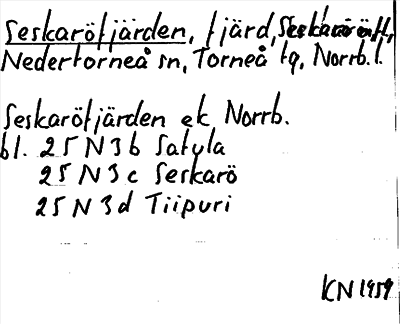 Seskaröfjärden, fjärd,
Nedertorneå sn, Torneå tg, Norrb. l.
Seskaröfjärden ek Norrb.
bl. 25 N 3 b Satula
25 N 3 c Seskarö
25 N 3 d Tiipuri
KN 1959